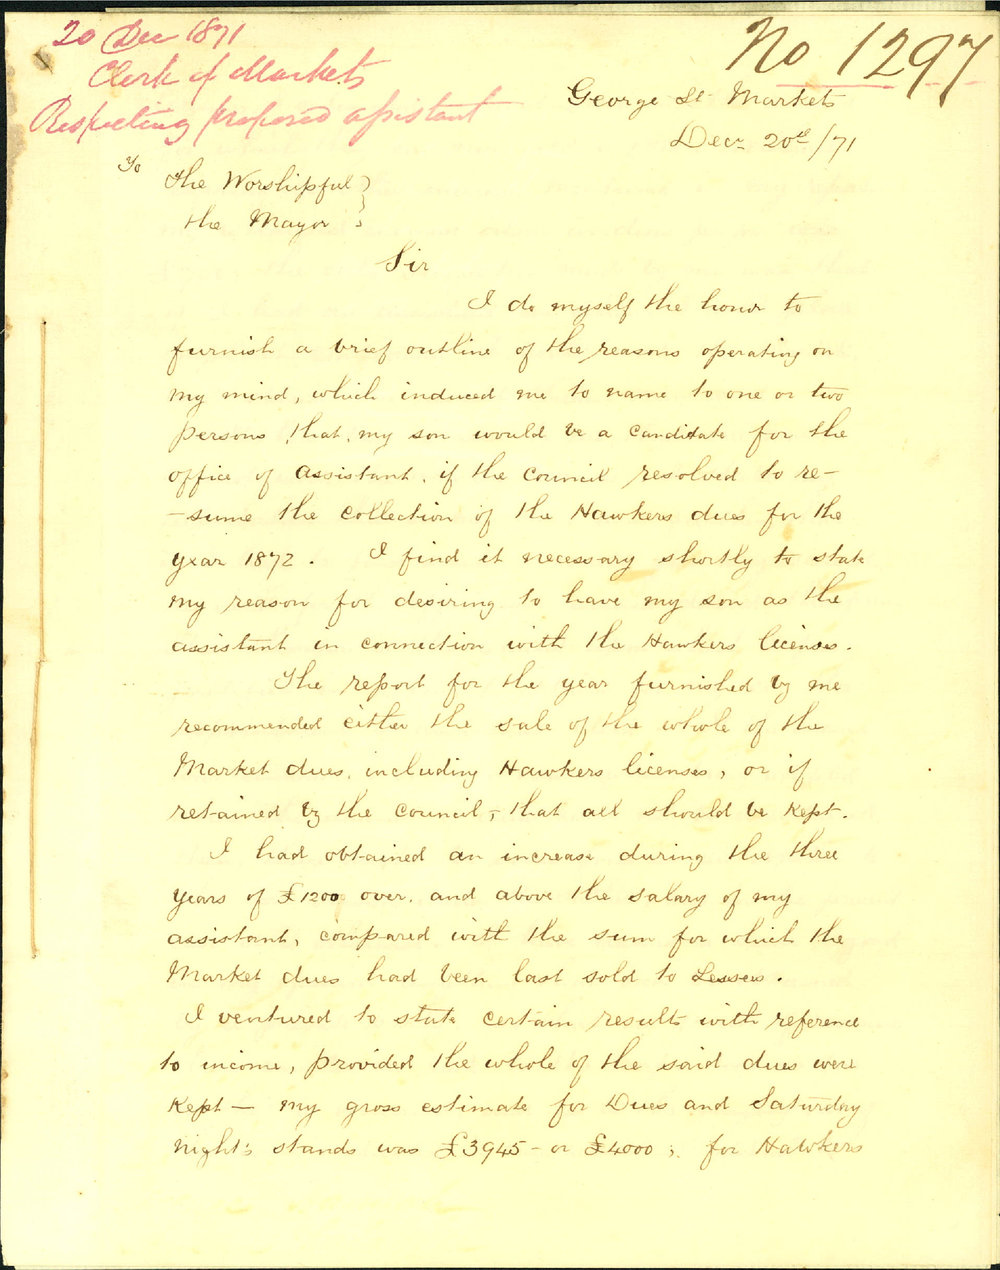 20 Dec 1871
Clerk of Markets
Respecting proposed assistant
No 1297
George St Markets
Decr 20th/71
To
The Worshipful
the Mayor
Sir
I do myself the honor to
furnish a brief outline of the reasons operating on
my mind, which induced me to name to one or two
persons, that, my son would be a candidate for the
office of assistant, if the Council resolved to re-
-sume the collection of the Hawkers dues for the
year 1872. I find it necessary shortly to state
my reason for desiring to have my son as the
assistant in connection with the Hawkers licenses.
The report for the year furnished by me
recommended either the sale of the whole of the
Market dues, including Hawkers licenses, or if
retained by the Council, that all should be kept.
I had obtained an increase during the three
years of £1200 over, and above the salary of my
assistant, compared with the sum for which the
Market dues had been last sold to Lessees.
I ventured to state certain results with reference
to income, provided the whole of the said dues were
kept — my gross estimate for Dues and Saturday
night's stands was £3945 - or £4000; for Hawkers